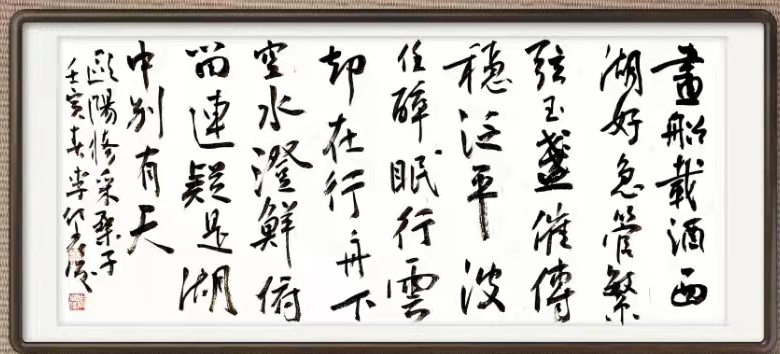 畫船載酒西
湖好急管繁
弦玉盞催傳
穩泛平波
任醉眠行雲
却在行舟下
空水澄鮮俯
留連疑是湖
中别有天
歐陽修采桑子
壬寅春李